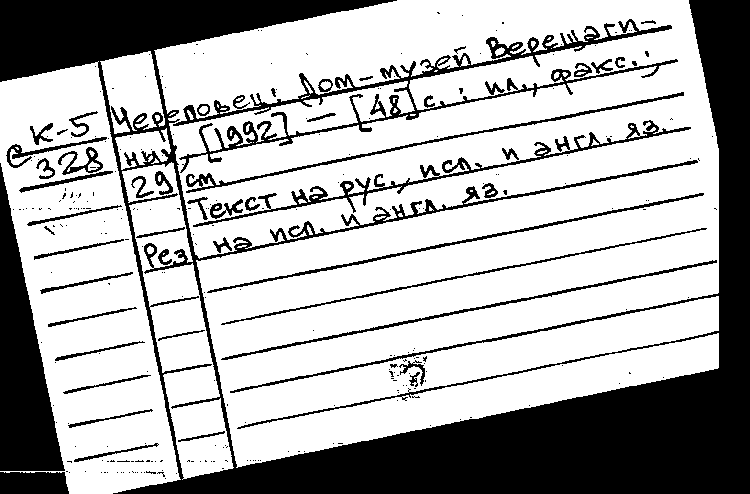 Череповец: Дом-музей Верещаги-
К-5
ных, [1992]. — [48] с. : ил., факс.;
328
29 см.
Текст на рус., исп. и англ. яз.
Рез. на исп. и англ. яз.